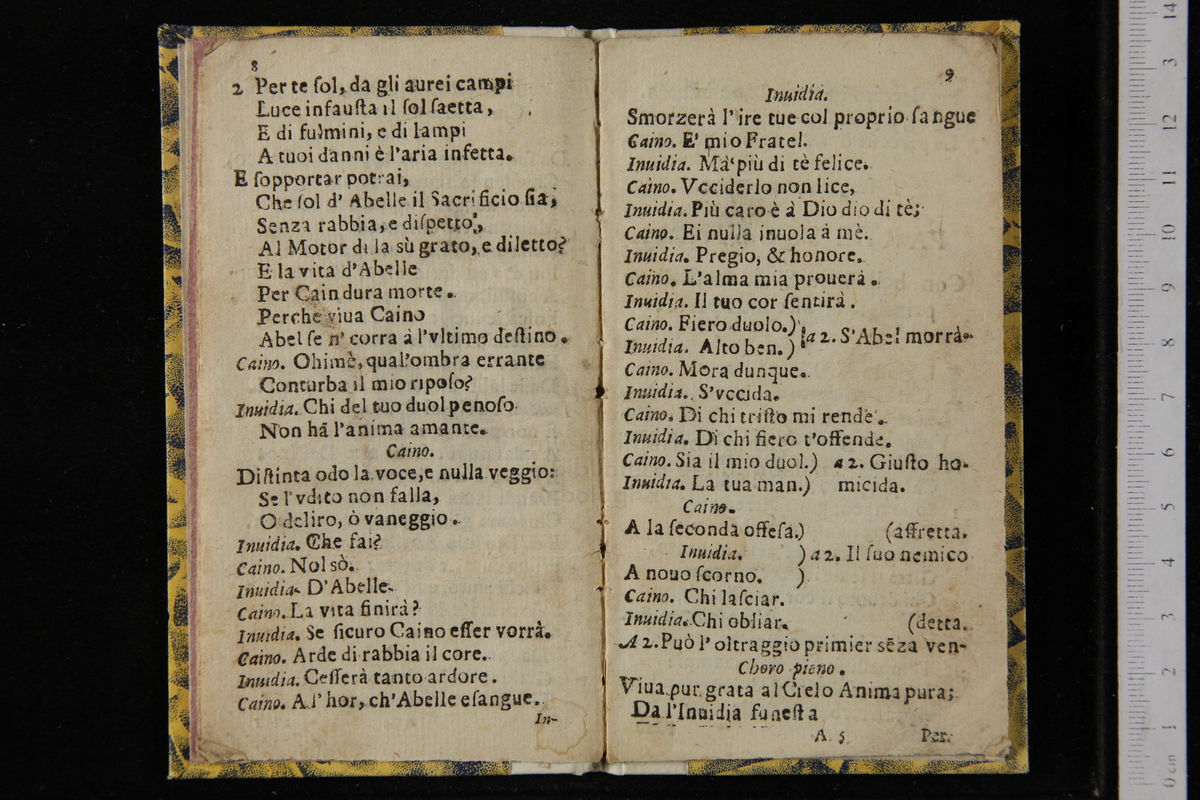 8
2 Per te ſol, da gli aurei campi
Luce infauſta il ſol ſaetta,
E di fulmini, e di lampi
A tuoi danni è l'aria infetta.
E ſopportar potrai,
Che ſol d' Abelle il Sacrificio ſia,
Senza rabbia, e diſpetto,
Al Motor di la sù grato, e diletto?
E la vita d'Abelle
Per Cain dura morte.
Perche viua Caino
Abel ſe n' corra à l'vltimo deſtino.
Caino. Ohimè, qual'ombra errante
Conturba il mio ripoſo?
Inuidia. Chi del tuo duol penoſo
Non hà l'anima amante.
Caino.
Diſtinta odo la voce, e nulla veggio:
Se l'vdito non falla,
O deliro, ò vaneggio.
Inuidia. Che fai?
Caino. Nol sò.
Inuidia. D'Abelle.
Caino. La vita finirà?
Inuidia. Se ſicuro Caino eſſer vorrà.
Caino. Arde di rabbia il core.
Inuidia. Ceſſerà tanto ardore.
Caino. A l' hor, ch'Abelle eſangue.
In-
9
Inuidia.
Smorzerà l' ire tue col proprio ſangue
Caino. E' mio Fratel.
Inuidia. Mà più di tè felice.
Caino. Vcciderlo non lice,
Inuidia. Più caro è à Dio dio di tè;
Caino. Ei nulla inuola à mè.
Inuidia. Pregio, & honore.
Caino. L'alma mia prouerà.
Inuidia. Il tuo cor ſentirà.
Caino. Fiero duolo.)
Inuidia. Alto ben.) a 2. S'Abel morrà.
Caino. Mora dunque.
Inuidia. S'vccida.
Caino. Di chi triſto mi rende.
Inuidia. Di chi fiero t'offende.
Caino. Sia il mio duol.) a 2. Giuſto ho-
Inuidia. La tua man.) micida.
Caino.
A la ſeconda offeſa.) (affretta.
Inuidia. ) a 2. Il ſuo nemico
A nouo ſcorno. )
Caino. Chi laſciar.
Inuidia. Chi obliar. (detta.
A 2. Può l' oltraggio primier sēza ven-
Choro pieno.
Viua pur grata al Cielo Anima pura;
Da l'Inuidia funeſta
A 5 Per.
0 cm 1 2 3 4 5 6 7 8 9 10 11 12 3 14